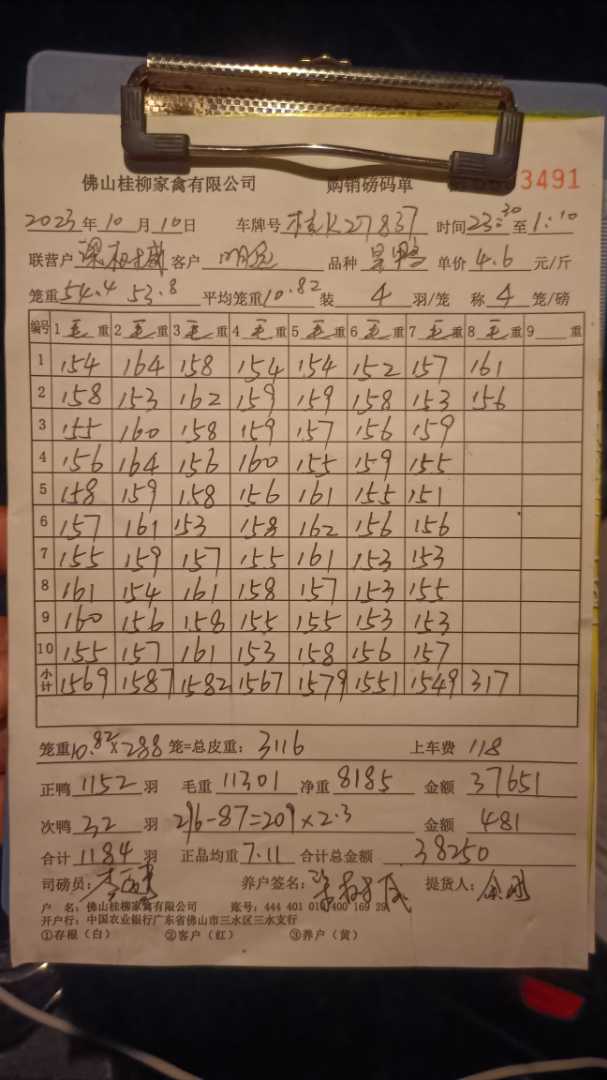 佛山桂柳家禽有限公司 购销磅码单 3491
2023年10月10日 车牌号 桂K27837 时间23:30至1:10
联营户 客户 品种 单价4.6元/斤
笼重54.4 53.8 平均笼重10.82装 4 羽/笼 称 4 笼/磅
编号 1毛重 2毛重 3毛重 4毛重 5毛重 6毛重 7毛重 8毛重 9 重
1 154 164 158 154 154 152 157 161
2 158 153 162 159 159 158 153 156
3 155 160 158 159 157 156 159
4 156 164 156 160 155 159 155
5 158 159 158 156 161 155 151
6 157 161 153 158 162 156 156
7 155 159 157 155 161 153 153
8 161 154 161 158 157 153 155
9 160 156 158 155 155 153 153
10 155 157 161 153 158 156 157
小计 1569 1587 1582 1567 1579 1551 1549 317
笼重10.82×288笼=总皮重：3116 上车费 118
正鸭 1152 羽 毛重 11301 净重 8185 金额 37651
次鸭 32 羽 296-87=209×2.3 金额 481
合计 1184 羽 正品均重 7.11 合计总金额 38250
司磅员： 养户签名： 提货人：
户 名：佛山桂柳家禽有限公司 账号：444 401 010 400 169 29
开户行：中国农业银行广东省佛山市三水区三水支行
①存根（白） ②客户（红） ③养户（黄）